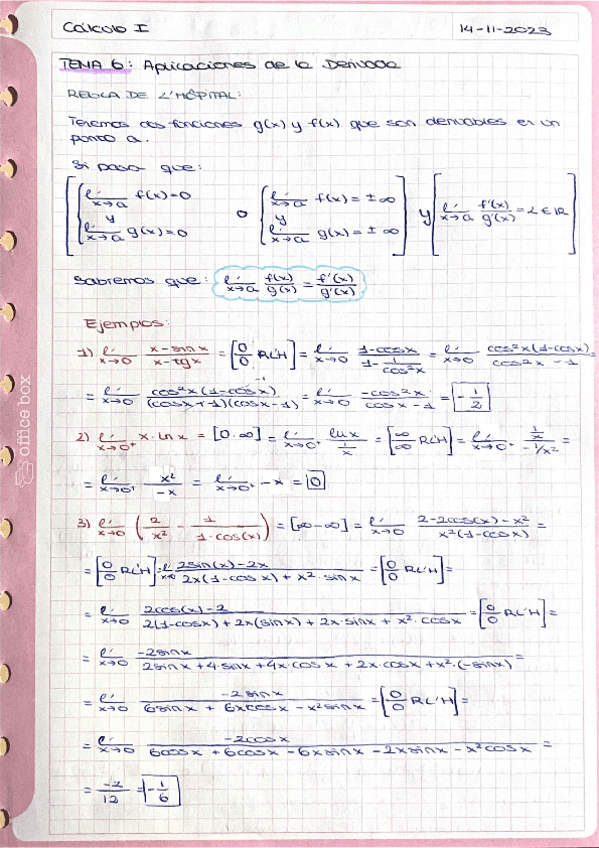 Cálculo I 14-11-2023
TEMA 6: Aplicaciones de la Derivada
REGLA DE L'HÔPITAL:
Tenemos dos funciones g(x) y f(x) que son derivables en un
punto a.
Si pasa que:
[ { lím x→a f(x)=0 y lím x→a g(x)=0 o { lím x→a f(x)=±∞ y lím x→a g(x)=±∞ ] y [ lím x→a f'(x)/g'(x) = L ∈ ℝ ]
Sabremos que: lím x→a f(x)/g(x) = f'(x)/g'(x)
Ejemplos:
1) lím x→0 (x-sinx)/(x-tgx) = [0/0 RL'H] = lím x→0 (1-cosx)/(1-1/cos²x) = lím x→0 cos²x(1-cosx)/(cos²x-1) =
= lím x→0 cos²x(1-cosx)^-1/((cosx+1)(cosx-1)) = lím x→0 -cos²x/(cosx-1) = -1/2
2) lím x→0⁺ x·lnx = [0·∞] = lím x→0⁺ lnx/(1/x) = [∞/∞ RL'H] = lím x→0⁺ (1/x)/(-1/x²) =
= lím x→0⁺ x²/-x = lím x→0⁺ -x = 0
3) lím x→0 (2/x² - 1/(1-cos(x))) = [∞-∞] = lím x→0 (2-2cos(x)-x²)/(x²(1-cosx)) =
= [0/0 RL'H] = lím x→0 (2sin(x)-2x)/(2x(1-cosx)+x²·sinx) = [0/0 RL'H] =
= lím x→0 (2cos(x)-2)/(2(1-cosx)+2x(sinx)+2x·sinx+x²·cosx) = [0/0 RL'H] =
= lím x→0 -2sinx/(2sinx+4·sinx+4x·cosx+2x·cosx+x²·(-sinx)) =
= lím x→0 -2sinx/(6sinx+6xcosx-x²sinx) = [0/0 RL'H] =
= lím x→0 -2cosx/(6cosx+6cosx-6xsinx-2xsinx-x²cosx) =
= -2/12 = -1/6
office box